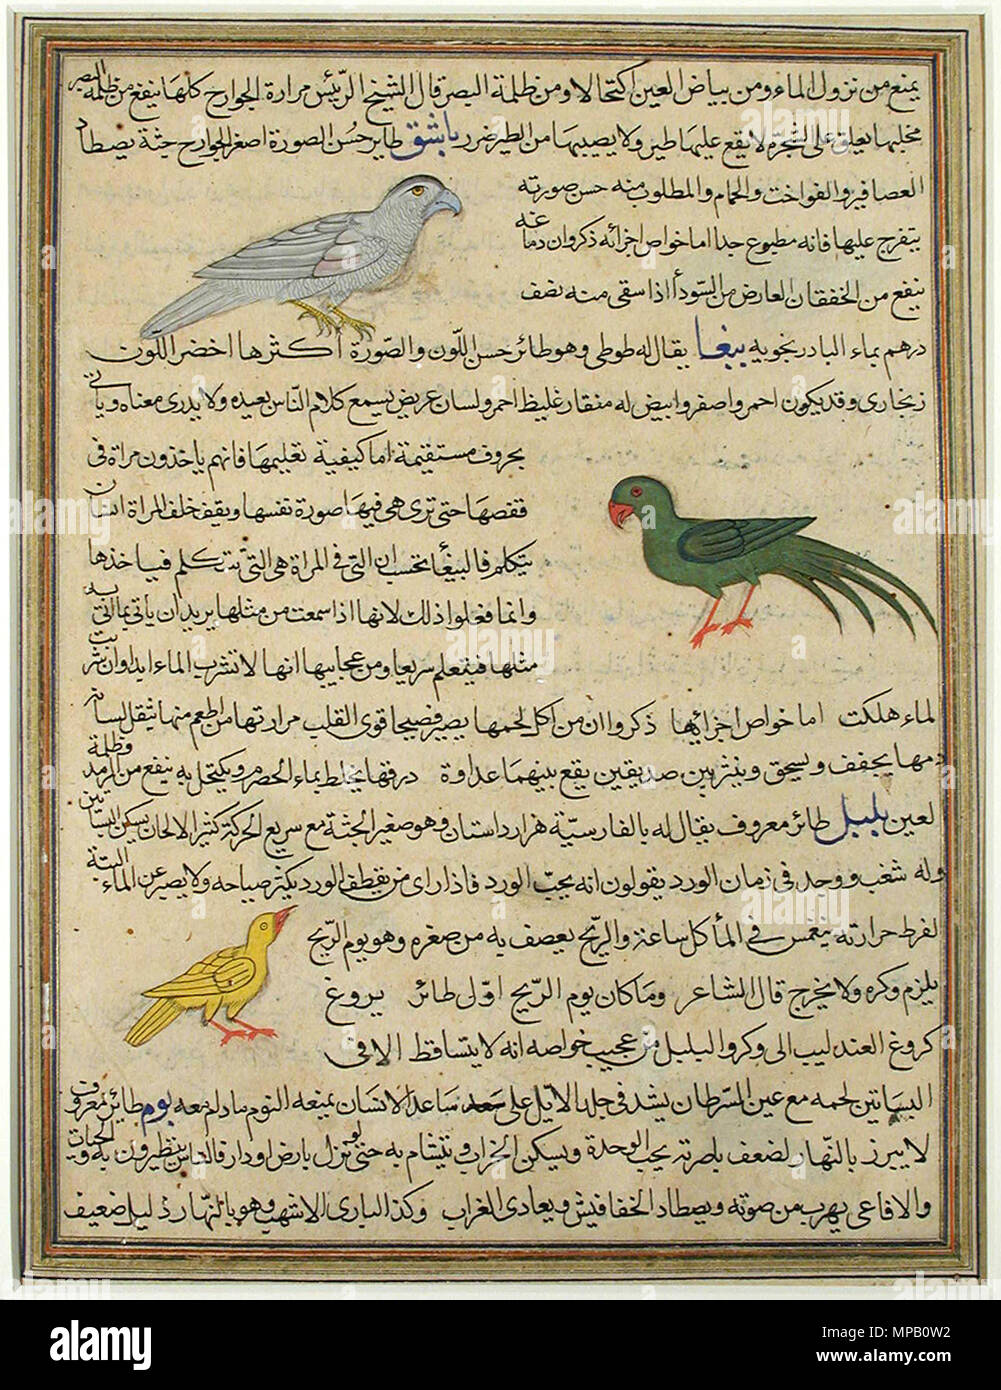 يمنع من نزول الماء ومن بياض العين اكتحالا ومن ظلمة البصر قال الشيخ الرئيس مرارة الجوارح كلها ينفع من ظلمة البصر
مخلبها يعلق على الشجرة لا يقع عليها طير ولا يصيبها من الطير ضرر باشق طاير حسن الصورة اصغر الجوارح جثة يصطاد
العصافير والفواخت والحمام والمطلوب منه حسن صورته
يتفرج عليها فانه مطبوع جدا اما خواص اجزائه ذكروا ان دماغه
ينفع من الخفقان العارض من السودأ اذا سقى منه نصف
درهم بماء البادرنجويه ببغا يقال له طوطى وهو طائر حسن اللون والصورة اكثرها اخضر اللون
زنجارى وقد يكون احمر واصفر وابيض له منقار غليظ احمر ولسان عريض يسمع كلام الناس يعيده ولا يدرى معناه وياتى
بحروف مستقيمة اما كيفية تعليمها فانهم ياخذون مراة فى
قفصها حتى ترى هى فيها صورة نفسها ويقف خلف المراة انسان
يتكلم فالببغأ تحسب ان التى فى المراة هى التى تتكلم فياخذها
وانما فعلوا ذلك لانها اذا سمعت من مثلها يريد ان ياتى بما اتى به
مثلها فيتعلم سريعا ومن عجايبها انها لا تشرب الماء ابدا وان شربت
الماء هلكت اما خواص اجزائها ذكروا ان من اكل لحمها يصير فصيحا قوى القلب مرارتها من اطعم منها ثقل لسانه
دمها يجفف ويسحق وينثر بين صديقين يقع بينهما عداوة درقها يخلط بماء الحصرم ويكتحل به ينفع من الرمد وظلمة
العين بلبل طائر معروف يقال له بالفارسية هزارداستان وهو صغير الجثة مع سريع الحركة كثير الالحان يسكن البساتين
وله شغب ووجد فى زمان الورد يقولون انه يحب الورد فاذا راى من يقطف الورد يكثر صياحه ولا يصبر عن الماء البتة
لفرط حرارته ينغمس فى المأ كل ساعة والريح يعصف به من صغره وهو يوم الريح
يلزم وكره ولا يخرج قال الشاعر وما كان يوم الريح اول طائر يروغ
كروغ العندليب الى وكر والبلبل من عجيب خواصه انه لا يتساقط الا فى
البساتين لحمه مع عين السرطان يشد فى جلد الايل على ساعد الانسان يمنعه النوم ما دام معه بوم طائر معروف
لا يبرز بالنهار لضعف باصرته يحب الوحدة ويسكن الخراب ويتشام به حتى لو نزل بارض او دار فالناس يتطيرون به والحيات
والافاعى يهرب من صوته ويصطاد الخفافيش ويعادى الغراب وكذا البازى الاشهب وهو بالنهار ذليل ضعيف
alamy
MPB0W2
www.alamy.com